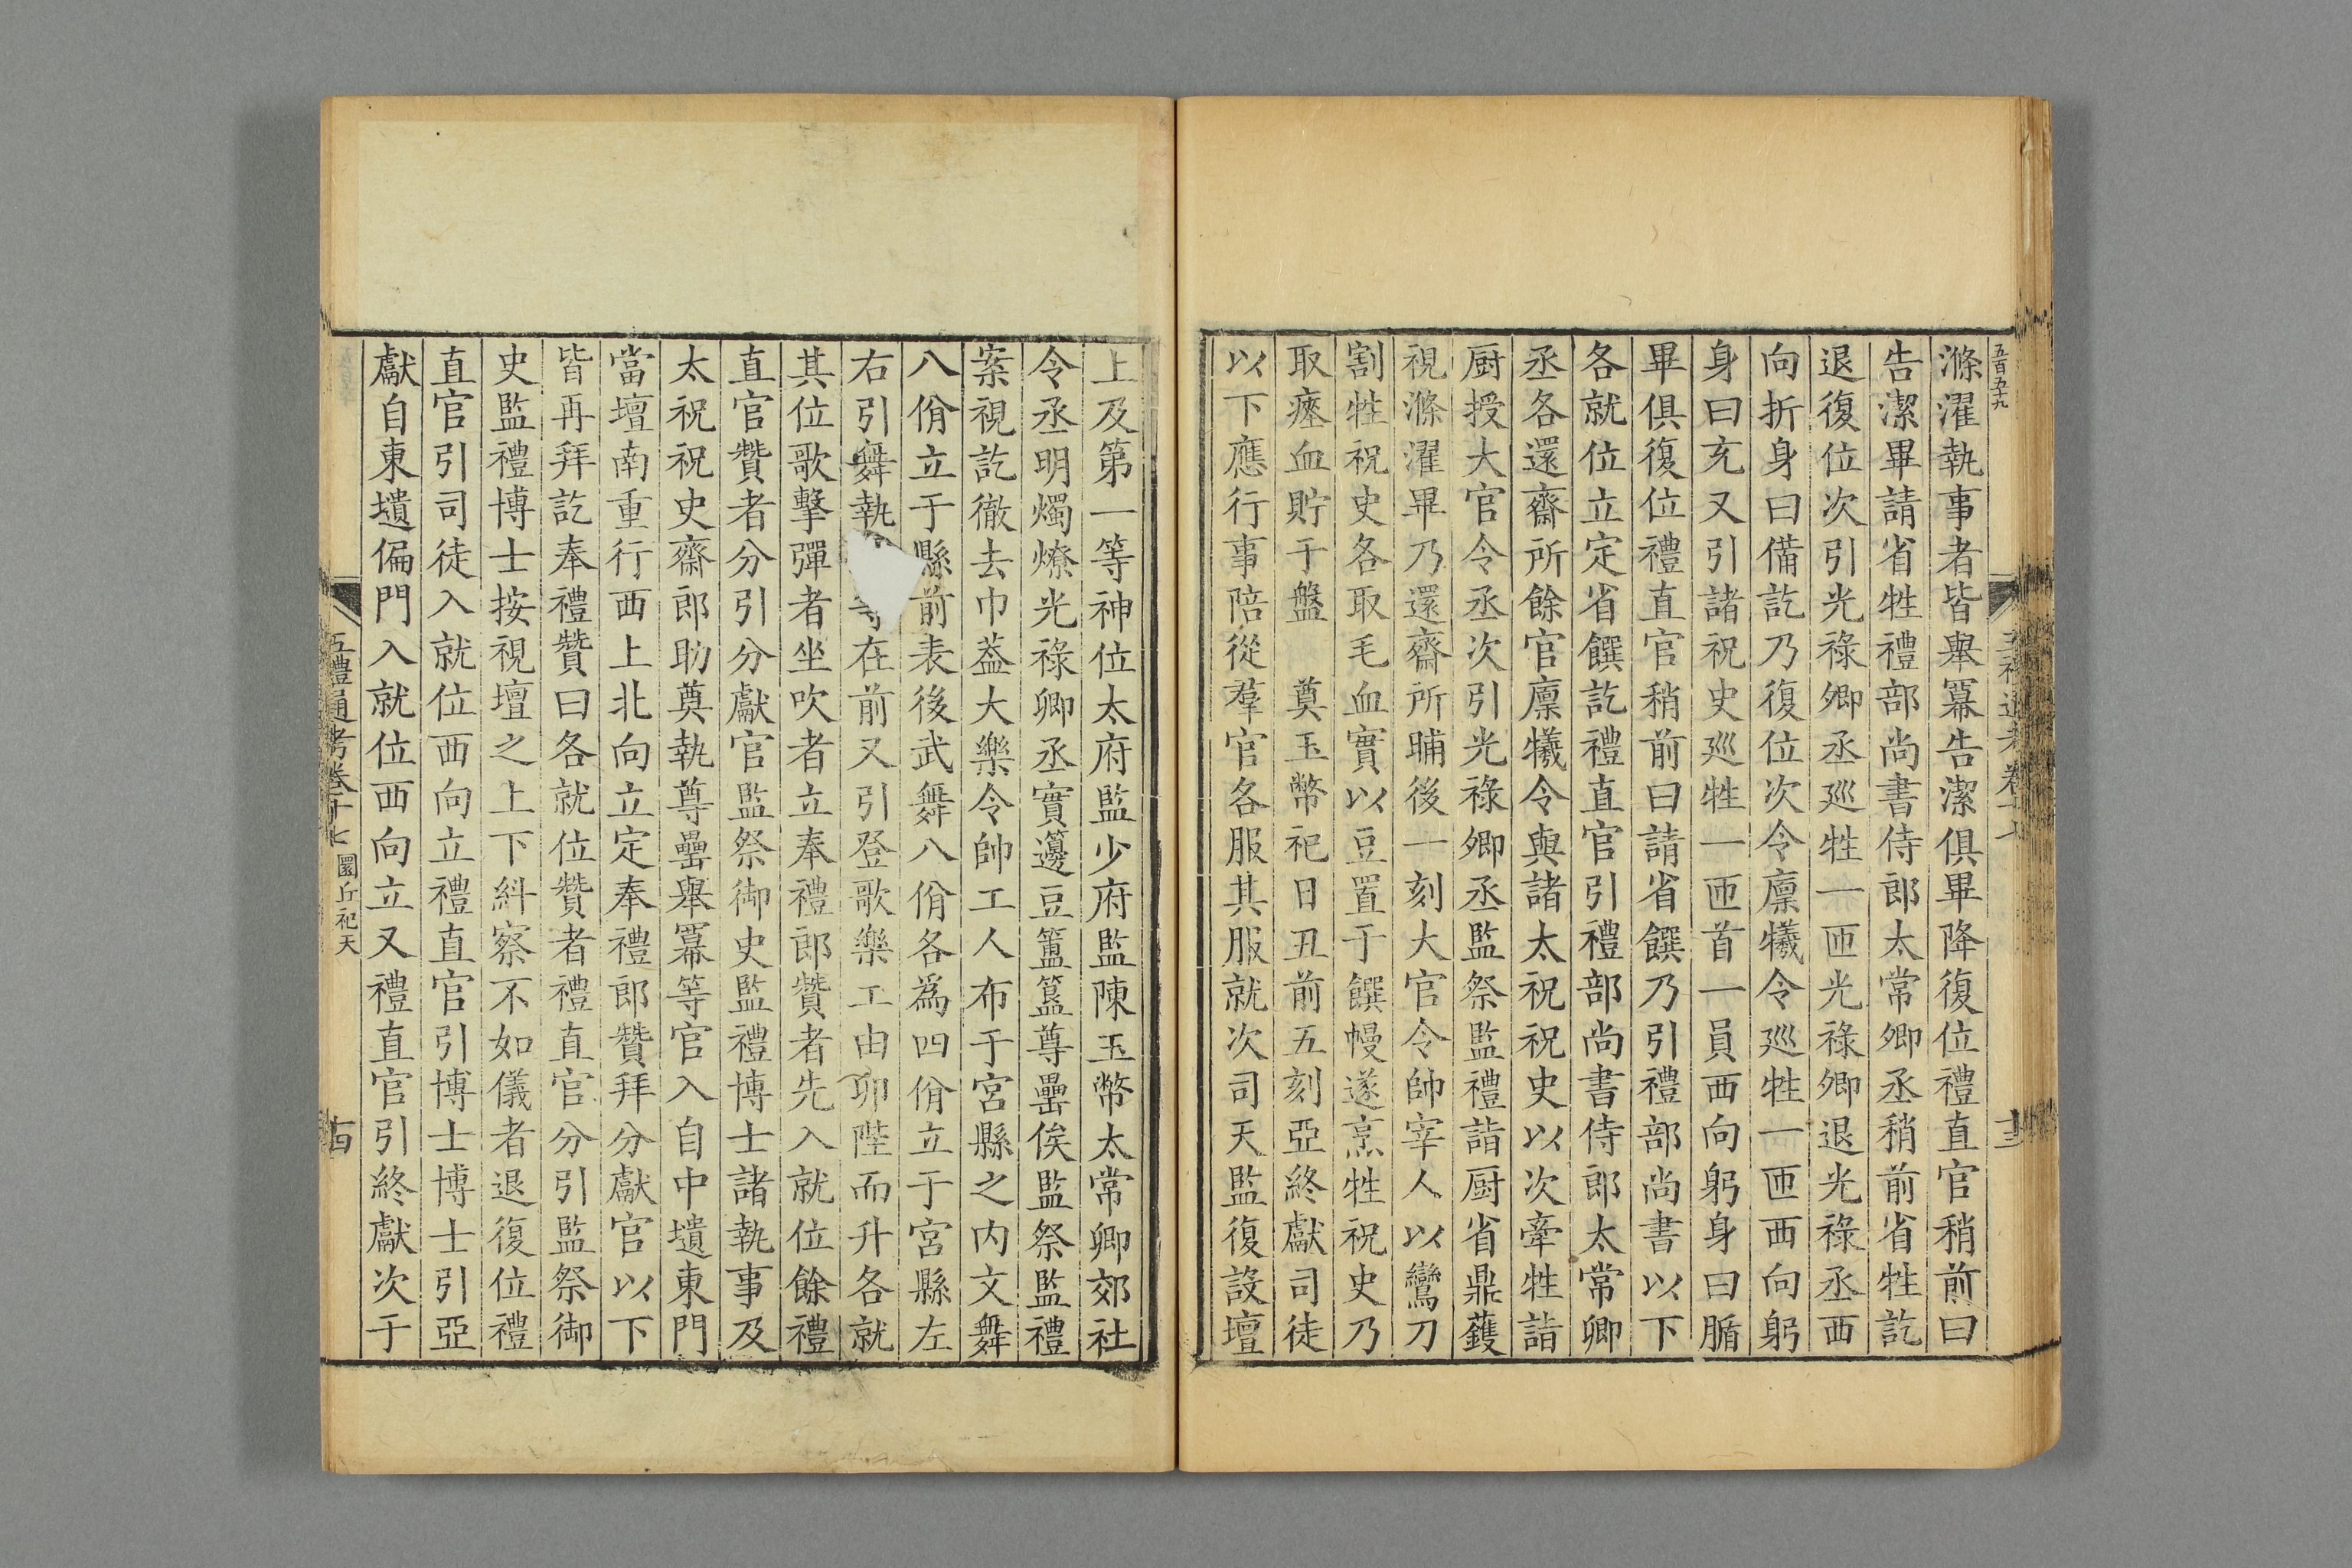 五百五十九
滌濯執事者皆舉羃告潔俱畢降復位禮直官稍前曰
告潔畢請省牲禮部尚書侍郎太常卿丞稍前省牲訖
退復位次引光祿卿丞廵牲一匝光祿卿退光祿丞西
向折身曰備訖乃復位次令廩犧令廵牲一匝西向躬
身曰充又引諸祝史廵牲一匝首一員西向躬身曰腯
畢俱復位禮直官稍前曰請省饌乃引禮部尚書以下
各就位立定省饌訖禮直官引禮部尚書侍郎太常卿
丞各還齋所餘官廩犧令與諸太祝祝史以次牽牲詣
厨授大官令丞次引光祿卿丞監祭監禮詣厨省鼎鑊
視滌濯畢乃還齋所晡後一刻大官令帥宰人以鸞刀
割牲祝史各取毛血實以豆置于饌幔遂烹牲祝史乃
取瘞血貯于盤　奠玉幣祀日丑前五刻亞終獻司徒
以下應行事陪從羣官各服其服就次司天監復設壇
上及第一等神位太府監少府監陳玉幣太常卿郊社
令丞明燭燎光祿卿丞實籩豆簠簋尊罍俟監祭監禮
案視訖徹去巾葢大樂令帥工人布于宮縣之内文舞
八佾立于縣前表後武舞八佾各為四佾立于宮縣左
右引舞執在前又引登歌樂工由卯陛而升各就
其位歌擊彈者坐吹者立奉禮郎贊者先入就位餘禮
直官贊者分引分獻官監祭御史監禮博士諸執事及
太祝祝史齋郎助奠執尊罍舉羃等官入自中壝東門
當壇南重行西上北向立定奉禮郎贊拜分獻官以下
皆再拜訖奉禮贊曰各就位贊者禮直官分引監祭御
史監禮博士按視壇之上下糾察不如儀者退復位禮
直官引司徒入就位西向立禮直官引博士博士引亞
獻自東壝偏門入就位西向立又禮直官引終獻次于
五禮通考卷十七 圜丘祀天
古